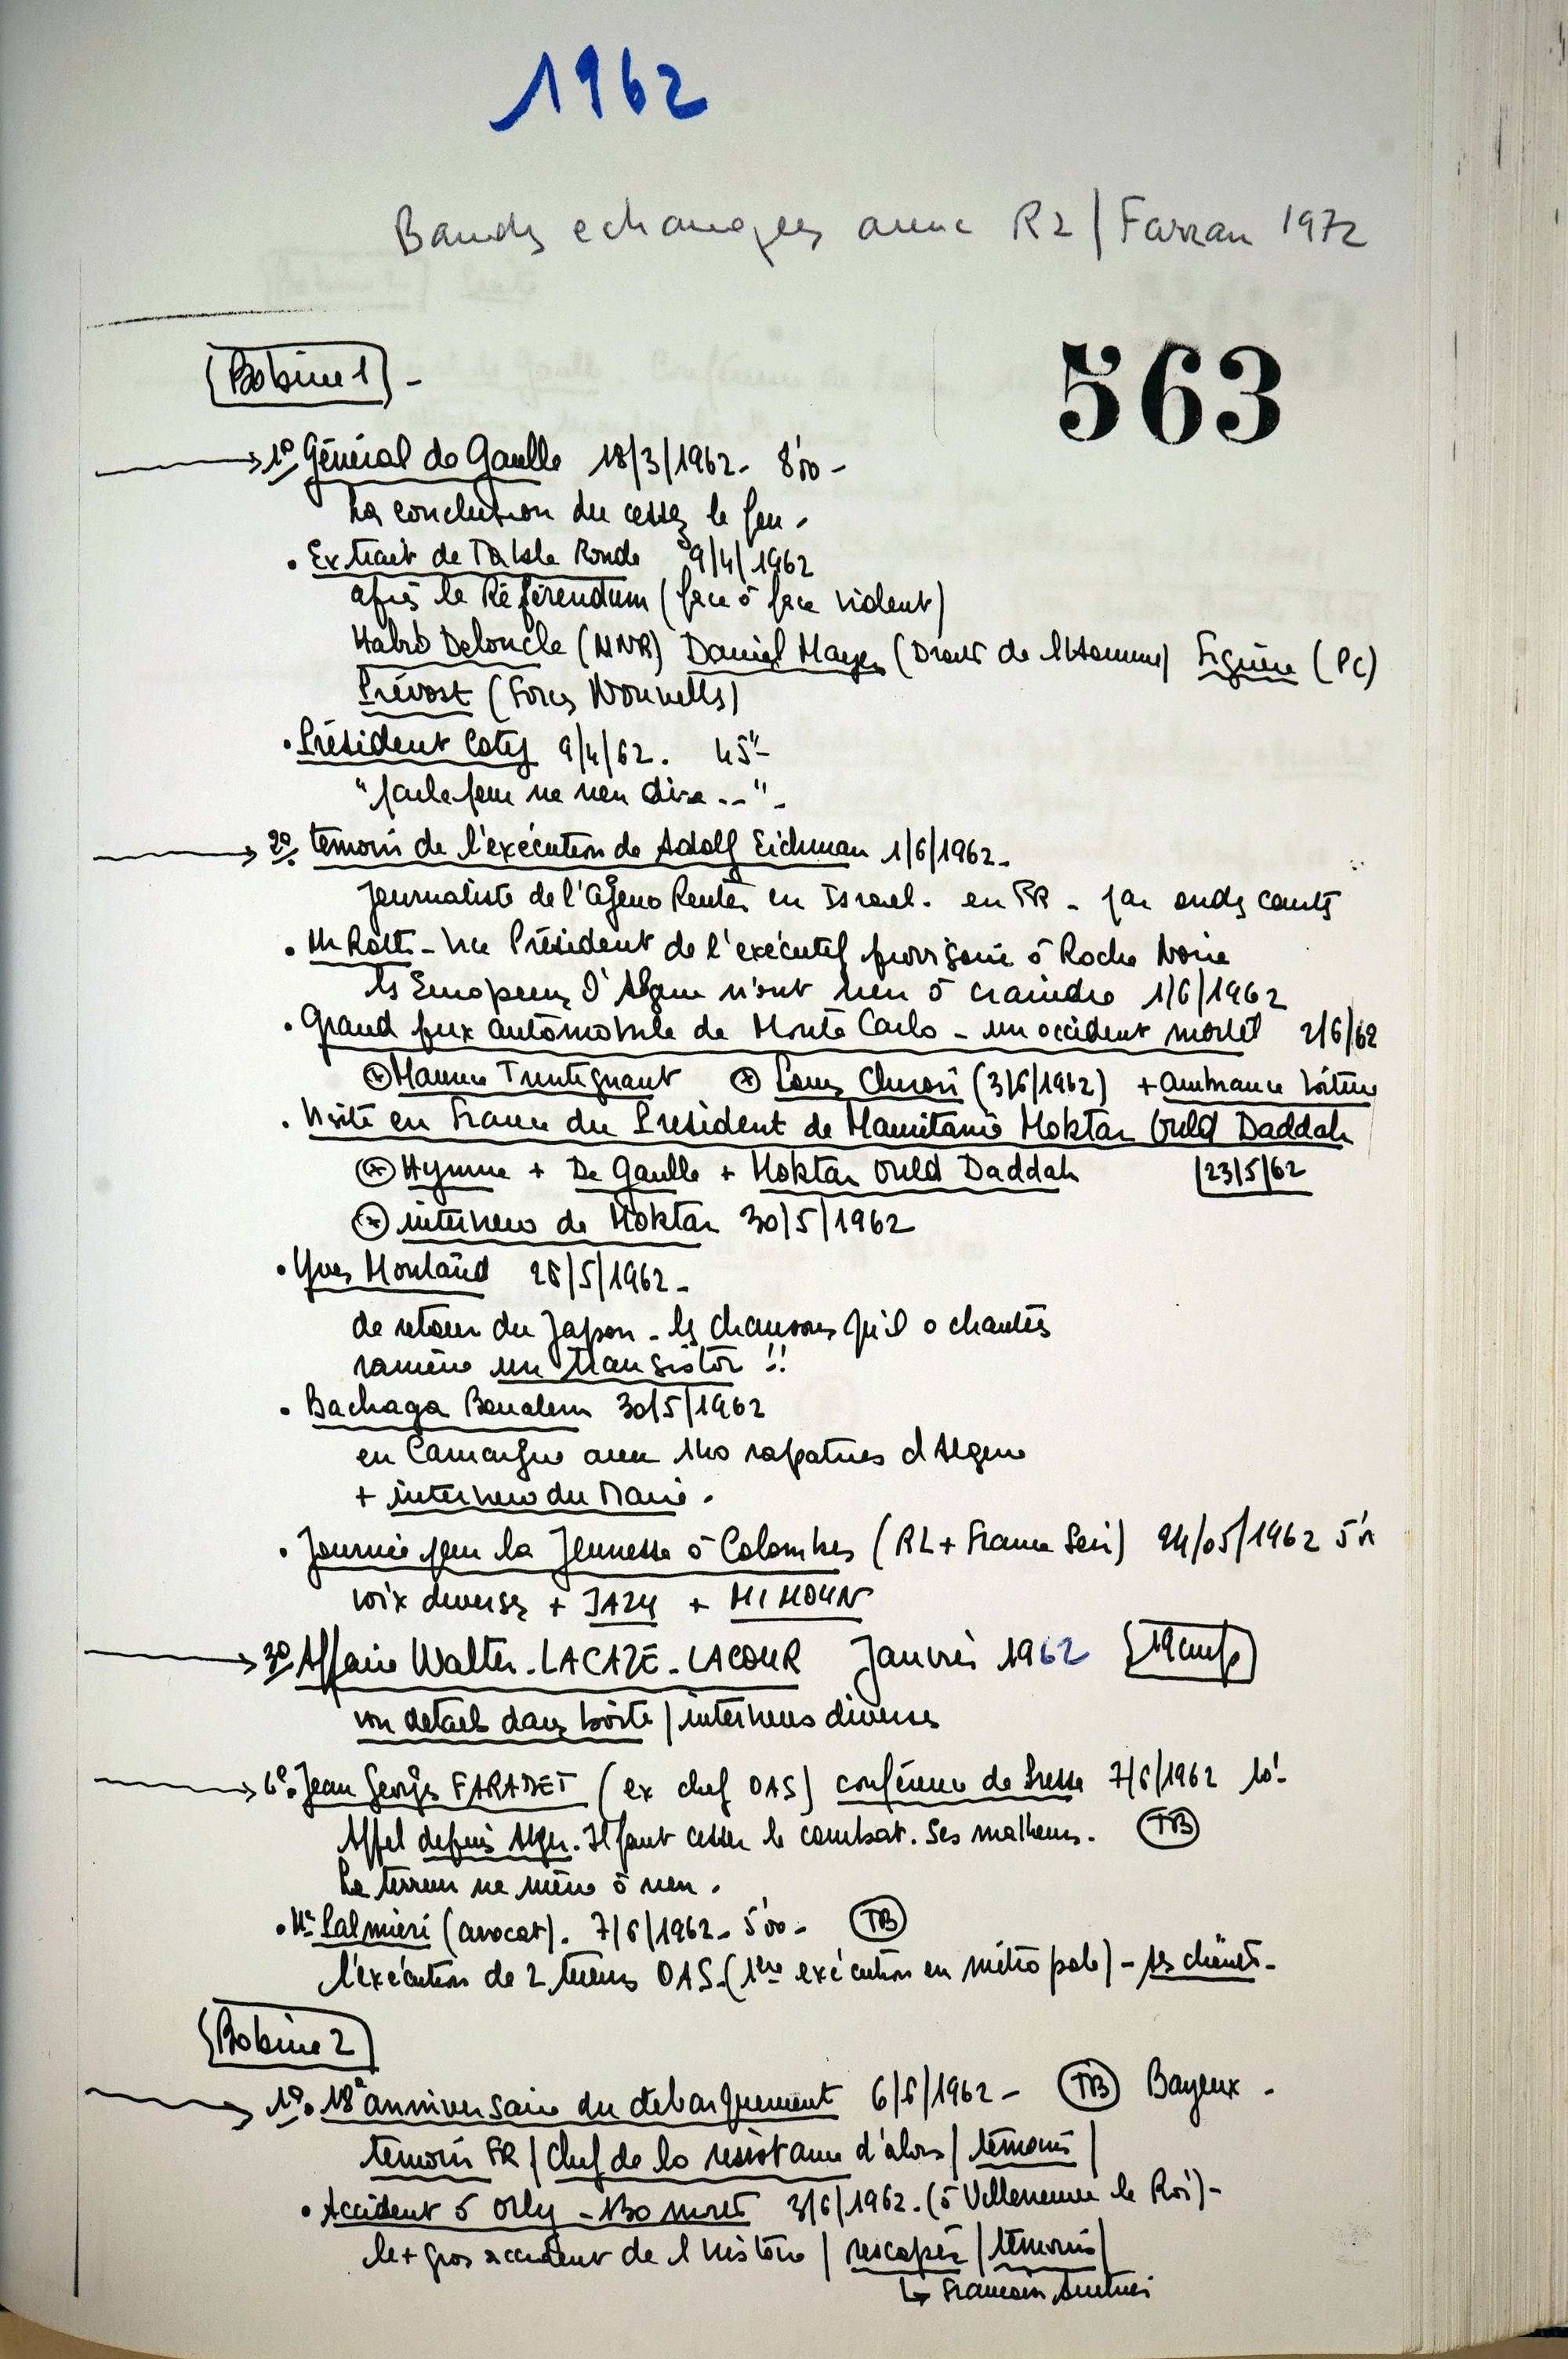 1962
Bandes echangées avec R2 / Farran 1972
Bobine 1 -
563
1º Général de Gaulle 18/3/1962 - 8'00 -
La conclusion du cessez le feu -
• Extrait de Table Ronde 9/4/1962
après le Référendum (face à face violent)
Habib Deloncle (UNR) Daniel Mayer (Droits de l'Homme) Figuère (PC)
Prévost (Forces Nouvelles)
• Président Coty 9/4/62. 45"-
"parle pour ne rien dire ..." -
2º. témoin de l'exécution de Adolf Eichman 1/6/1962 -
Journaliste de l'Agence Reuter en Israel. en FR - par ondes courtes
• Mr - Vice Président de l'exécutif provisoire à Roche Noire
les Européens d'Algérie n'ont rien à craindre 1/6/1962
• Grand prix automobile de Monte Carlo - un accident mortel 2/6/62
Maurice Trintignant Louis Chiron (3/6/1962) + ambiance voiture
• Visite en France du President de Mauritanie Moktar Ould Daddah
Hymne + De Gaulle + Moktar Ould Daddah 23/5/62
interview de Moktar 30/5/1962
• Yves Montand 28/5/1962 -
de retour du Japon - les chansons qu'il a chantées
ramène un transistor !!
• Bachaga Boualem 30/5/1962
en Camargue avec 140 rapatriés d'Algérie
+ interview du Maire.
• Journée pour la Jeunesse à Colombes (RL + France Soir) 24/05/1962
voix diverses + JAZY + MIMOUN
3º Affaire Walter - LACAZE - LACOUR Janvier 1962
voir détail dans boite / interviews diverses
6º. Jean Georges FARADET (ex chef OAS) conférence de presse 7/6/1962 10'-
Appel depuis Alger. Il faut cesser le combat. Ses malheurs. TB
La terreur ne mène à rien.
• Me Palmieri (avocat). 7/6/1962 - 5'00 - TB
l'exécution de 2 tueurs OAS - (1ère exécution en métropole) -
Bobine 2
1º. 18e anniversaire du débarquement 6/6/1962 - TB Bayeux -
témoin FR / Chef de la résistance d'alors / témoins /
• Accident à Orly - 130 morts 3/6/1962. (à Villeneuve le Roi) -
le + gros accident de l'histoire / rescapés / témoins /
↳ Francois